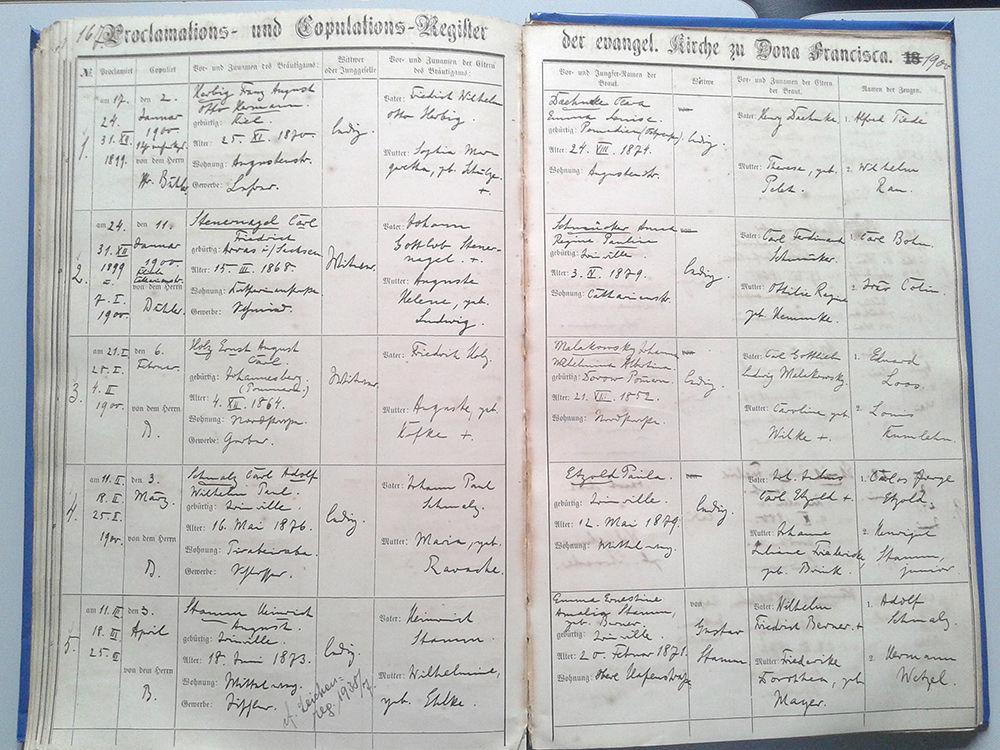 167
Proclamations- und Copulations-Register
№
Proclamiert
Copuliert
Vor- und Zunamen des Bräutigams:
Wittwer oder Junggeselle
Vor- und Zunamen der Eltern des Bräutigams:
1
am 17.
24.
31. XII
1899.
den 2.
Januar
1900.
von dem Herrn
Herbig Franz August
Otto Hermann
gebürtig: Kiel.
Alter: 25. XI. 1870.
Wohnung: Augustenstr.
Gewerbe:
ledig.
Vater: Friedrich Wilhelm
Otto Herbig.
Mutter: Sophia Mar
garetha, geb. Schulze.
+
2.
am 24.
31. XII
1899
u.
7. I.
1900.
den 11.
Januar
1900.
von dem Herrn
Steuernagel Carl
Friedrich
gebürtig: Arras i/Sachsen
Alter: 15. III. 1868.
Wohnung: Katharinenstraße
Gewerbe: Schmied.
Witwer.
Vater: Johann
Gottlob Steuer-
nagel. +.
Mutter: Auguste
Helene, geb.
Ludwig.
3.
am 21. I
28. I.
4. II
1900.
den 6.
Februar.
von dem Herrn
B.
Holz Ernst August
Carl
gebürtig: Johannesberg
(Pommern.)
Alter: 4. XII. 1864.
Wohnung: Nordstraße
Gewerbe: Gerber.
Witwer.
Vater: Friedrich Holz.
Mutter: Auguste, geb.
Köfke +.
4.
am 11. II
18. II
25. I.
1900.
den 3.
März.
von dem Herrn
B.
Schmalz Carl Adolf
Wilhelm Paul.
gebürtig: Joinville.
Alter: 16. Mai 1876.
Wohnung:
Gewerbe: Schlosser.
ledig.
Vater: Johann Paul
Schmalz.
Mutter: Maria, geb.
Ravache.
5.
am 11. III
18. III
25. III
den 3.
April
von dem Herrn
B.
Stamm Heinrich
August.
gebürtig: Joinville.
Alter: 18. Juni 1873.
Wohnung: Mittelweg.
Gewerbe: Tischler.
ledig.
cf. Leichen-
reg. 1930/
Vater: Heinrich
Stamm.
Mutter: Wilhelmine,
geb. Ehlke.
der evangel. Kirche zu Dona Francisca. 18 1900
Vor- und Jungfer-Namen der Braut.
Wittwe
Vor- und Zunamen der Eltern der Braut.
Namen der Zeugen.
Daehnke Clara
Emma Louise.
gebürtig:
Alter: 24. VIII. 1874.
Wohnung: Augustenstr.
ledig.
Vater: Henry Daehnke
Mutter: Therese, geb.
1. Alfred Tiede
2. Wilhelm
Rau.
Schmücker Anna
Regine Pauline
gebürtig: Joinville.
Alter: 3. V. 1879.
Wohnung: Catharinenstr.
ledig.
Vater: Carl Ferdinand
Schmücker.
Mutter: Ottilie Regine
geb. Hemmke.
1. Carl Bohn.
2. Colin.
Malakowsky Johanna
Wilhelmine Albertine
gebürtig:
Alter: 21. VII. 1852.
Wohnung: Nordstraße.
von
ledig.
Vater: Carl Gottlieb
Ludwig Malakowsky.
Mutter: Caroline geb.
Wilke +.
1. Eduard
Loos.
2. Louis
Etzold Paula
gebürtig: Joinville.
Alter: 12. Mai 1879.
Wohnung: Mittelweg.
von
ledig.
Vater: Joh. Julius
Carl Etzold +
Mutter: Johanne
Juliane Friederike
geb. Brink.
1. Carlos Jorge
Etzold.
2. Henrique
Stamm,
junior
Emma Ernestine
Amalia Stamm,
geb. Berner.
gebürtig: Joinville.
Alter: 20. Februar 1871.
Wohnung: Obere Hafenstraße
von
Gustav
Stamm
Vater: Wilhelm
Friedrich Berner. +
Mutter: Friederike
Dorothea, geb.
Mayer.
1. Adolf
Schmalz.
2. Hermann
Wetzel.